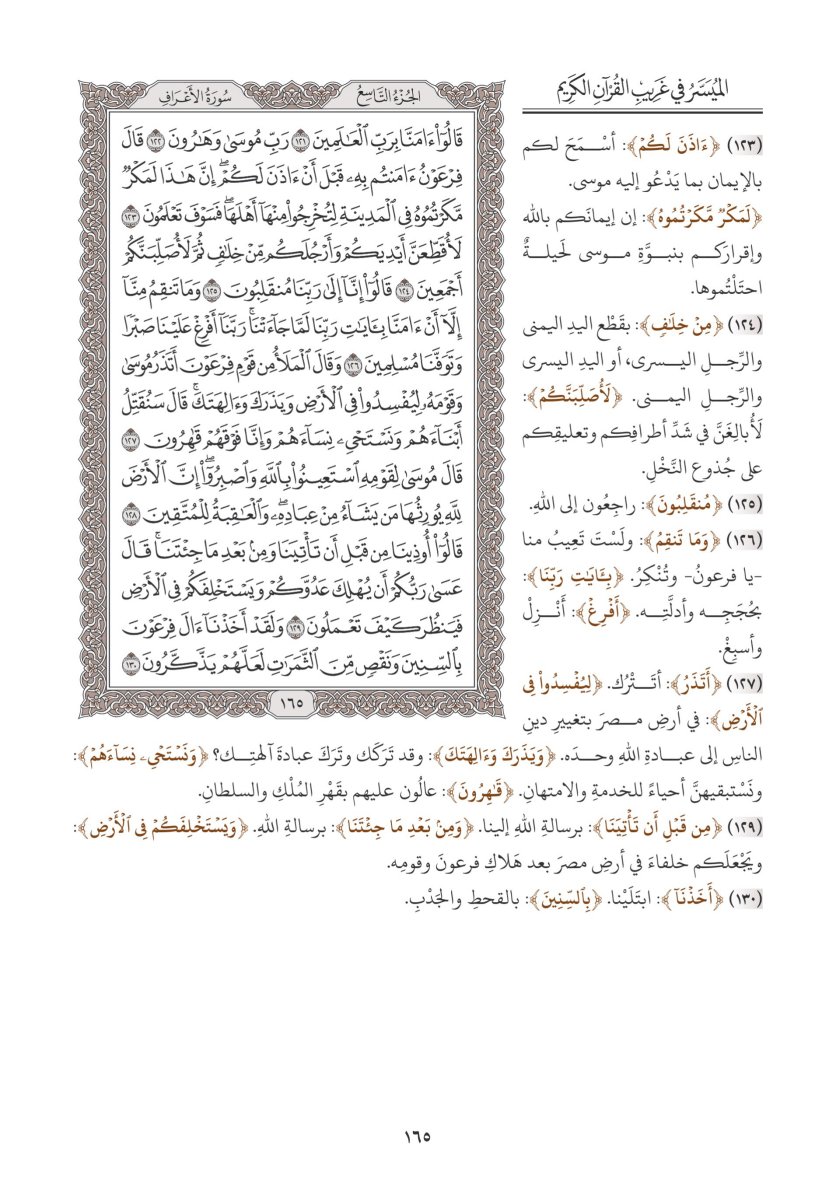 الميسر في غريب القرآن الكريم
سورة الأعراف
الجزء التاسع
قَالُوٓاْ ءَامَنَّا بِرَبِّ ٱلْعَٰلَمِينَ ١٢١ رَبِّ مُوسَىٰ وَهَٰرُونَ ١٢٢ قَالَ
فِرْعَوْنُ ءَامَنتُم بِهِۦ قَبْلَ أَنْ ءَاذَنَ لَكُمْۖ إِنَّ هَٰذَا لَمَكْرٌ
مَّكَرْتُمُوهُ فِي ٱلْمَدِينَةِ لِتُخْرِجُواْ مِنْهَآ أَهْلَهَاۖ فَسَوْفَ تَعْلَمُونَ ١٢٣
لَأُقَطِّعَنَّ أَيْدِيَكُمْ وَأَرْجُلَكُم مِّنْ خِلَٰفٍ ثُمَّ لَأُصَلِّبَنَّكُمْ
أَجْمَعِينَ ١٢٤ قَالُوٓاْ إِنَّآ إِلَىٰ رَبِّنَا مُنقَلِبُونَ ١٢٥ وَمَا تَنقِمُ مِنَّآ
إِلَّآ أَنْ ءَامَنَّا بِـَٔايَٰتِ رَبِّنَا لَمَّا جَآءَتْنَاۚ رَبَّنَآ أَفْرِغْ عَلَيْنَا صَبْرًا
وَتَوَفَّنَا مُسْلِمِينَ ١٢٦ وَقَالَ ٱلْمَلَأُ مِن قَوْمِ فِرْعَوْنَ أَتَذَرُ مُوسَىٰ
وَقَوْمَهُۥ لِيُفْسِدُواْ فِي ٱلْأَرْضِ وَيَذَرَكَ وَءَالِهَتَكَۚ قَالَ سَنُقَتِّلُ
أَبْنَآءَهُمْ وَنَسْتَحْيِۦ نِسَآءَهُمْ وَإِنَّا فَوْقَهُمْ قَٰهِرُونَ ١٢٧
قَالَ مُوسَىٰ لِقَوْمِهِ ٱسْتَعِينُواْ بِٱللَّهِ وَٱصْبِرُوٓاْۖ إِنَّ ٱلْأَرْضَ
لِلَّهِ يُورِثُهَا مَن يَشَآءُ مِنْ عِبَادِهِۦۖ وَٱلْعَٰقِبَةُ لِلْمُتَّقِينَ ١٢٨
قَالُوٓاْ أُوذِينَا مِن قَبْلِ أَن تَأْتِيَنَا وَمِنۢ بَعْدِ مَا جِئْتَنَاۚ قَالَ
عَسَىٰ رَبُّكُمْ أَن يُهْلِكَ عَدُوَّكُمْ وَيَسْتَخْلِفَكُمْ فِي ٱلْأَرْضِ
فَيَنظُرَ كَيْفَ تَعْمَلُونَ ١٢٩ وَلَقَدْ أَخَذْنَآ ءَالَ فِرْعَوْنَ
بِٱلسِّنِينَ وَنَقْصٍ مِّنَ ٱلثَّمَرَٰتِ لَعَلَّهُمْ يَذَّكَّرُونَ ١٣٠
١٦٥
(١٢٣) ﴿ءَاذَنَ لَكُمْ﴾: أسْمَحَ لكم
بالإيمان بما يَدْعُو إليه موسى.
﴿لَمَكْرٌ مَّكَرْتُمُوهُ﴾: إن إيمانَكم بالله
وإقرارَكم بنبوَّةِ موسى لَحيلةٌ
احتَلْتُموها.
(١٢٤) ﴿مِنْ خِلَٰفٍ﴾: بقَطْع اليدِ اليمنى
والرِّجلِ اليسرى، أو اليدِ اليسرى
والرِّجلِ اليمنى. ﴿لَأُصَلِّبَنَّكُمْ﴾:
لَأُبالِغَنَّ في شَدِّ أطرافِكم وتعليقِكم
على جُذوعِ النَّخْلِ.
(١٢٥) ﴿مُنقَلِبُونَ﴾: راجِعُون إلى اللهِ.
(١٢٦) ﴿وَمَا تَنقِمُ﴾: ولَسْتَ تَعِيبُ منا
-يا فرعونُ- وتُنْكِرُ. ﴿بِـَٔايَٰتِ رَبِّنَا﴾:
بحُجَجِه وأدلَّتِه. ﴿أَفْرِغْ﴾: أَنْزِلْ
وأسبِغْ.
(١٢٧) ﴿أَتَذَرُ﴾: أتَتْرُك. ﴿لِيُفْسِدُواْ فِي
ٱلْأَرْضِ﴾: في أرضِ مصرَ بتغييرِ دينِ
الناسِ إلى عبادةِ اللهِ وحدَه. ﴿وَيَذَرَكَ وَءَالِهَتَكَ﴾: وقد تَرَكَك وتَرَكَ عبادةَ آلهتِك؟ ﴿وَنَسْتَحْيِۦ نِسَآءَهُمْ﴾:
ونَسْتبقيهنَّ أحياءً للخدمةِ والامتهانِ. ﴿قَٰهِرُونَ﴾: عالُون عليهم بقَهْرِ المُلْكِ والسلطانِ.
(١٢٩) ﴿مِن قَبْلِ أَن تَأْتِيَنَا﴾: برسالةِ اللهِ إلينا. ﴿وَمِنۢ بَعْدِ مَا جِئْتَنَا﴾: برسالةِ اللهِ. ﴿وَيَسْتَخْلِفَكُمْ فِي ٱلْأَرْضِ﴾:
ويَجْعَلَكم خلفاءَ في أرضِ مصرَ بعد هَلاكِ فرعونَ وقومِه.
(١٣٠) ﴿أَخَذْنَآ﴾: ابتَلَيْنا. ﴿بِٱلسِّنِينَ﴾: بالقحطِ والجَدْبِ.
١٦٥